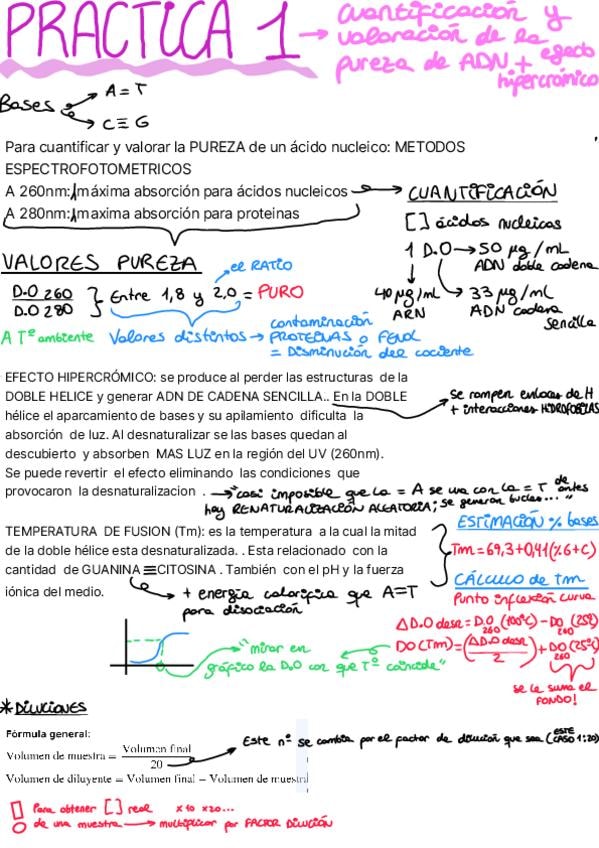 PRACTICA 1 → cuantificación y
valoración de la
pureza de ADN + efecto
hipercrómico
Bases → A = T
→ C ≡ G
Para cuantificar y valorar la PUREZA de un ácido nucleico: METODOS
ESPECTROFOTOMETRICOS
A 260nm: máxima absorción para ácidos nucleicos → CUANTIFICACIÓN
A 280nm: maxima absorción para proteinas
[ ] ácidos nucleicos
1 D.O → 50 µg/mL
ADN doble cadena
40 µg/mL
ARN
33 µg/mL
ADN cadena
sencilla
VALORES PUREZA
el RATIO
D.O 260
D.O 280
} Entre 1,8 y 2,0 = PURO
A Tº ambiente
Valores distintos → contaminación
PROTEINAS o FENOL
= Disminución del cociente
EFECTO HIPERCRÓMICO: se produce al perder las estructuras de la
DOBLE HELICE y generar ADN DE CADENA SENCILLA.. En la DOBLE
hélice el aparcamiento de bases y su apilamiento dificulta la
absorción de luz. Al desnaturalizar se las bases quedan al
descubierto y absorben MAS LUZ en la región del UV (260nm).
Se puede revertir el efecto eliminando las condiciones que
provocaron la desnaturalizacion .
se rompen enlaces de H
+ interacciones HIDROFOBICAS
→ casi imposible que la = A se una con la = T de antes
hay RENATURALIZACIÓN ALEATORIA; se generan bucles..."
TEMPERATURA DE FUSION (Tm): es la temperatura a la cual la mitad
de la doble hélice esta desnaturalizada. . Esta relacionado con la
cantidad de GUANINA ≡ CITOSINA . También con el pH y la fuerza
iónica del medio.
→ + energía calorífica que A=T
para disociación
ESTIMACIÓN % bases
Tm = 69,3 + 0,41 (% G + C)
CÁLCULO de Tm
Punto inflexión curva
Δ D.O desn = D.O 260 (100ºC) - DO 260 (25º)
DO (Tm) = (ΔD.O desn / 2) + DO 260 (25ºC)
se le suma el
FONDO!
"mirar en
gráfico la D.O con que Tº coincide"
* DILUCIONES
Fórmula general:
Volumen de muestra = Volumen final / 20
Volumen de diluyente = Volumen final – Volumen de muestra
Este nº se cambia por el factor de dilución que sea (ESTE CASO 1:20)
! Para obtener [ ] real x10 x20...
de una muestra → multiplicar por FACTOR DILUCIÓN